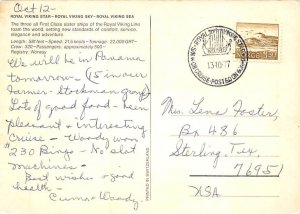 Oct 12-
ROYAL VIKING STAR · ROYAL VIKING SKY · ROYAL VIKING SEA
The three all First Class sister ships of the Royal Viking Line
roam the world, setting new standards of comfort, service,
elegance and adventure.
Length: 581 feet - Speed: 21,5 knots - Tonnage: 22.000 GRT -
Crew: 320 - Passengers: approximately 500 -
Registry: Norway
We will be in Panama
tomorrow - (15 in our
Farmer-Stockman group)
Lots of good food - been
pleasant + interesting
Cruise - Woody won
$230 Bingo - No slot
machines -
Best wishes + good
health -
+ Woody
PRINTED IN SWITZERLAND
13-10-77
NORGE
Mrs. Lena Foster,
Box 486
Sterling, Tex
76951
USA